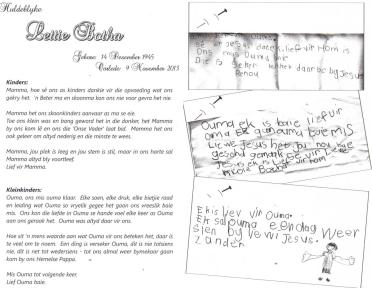 Huldeblyke
Lettie Botha
Gebore: 14 Desember 1945
Oorlede: 9 November 2013
Kinders:
Mamma, hoe sê ons as kinders dankie vir die opvoeding wat ons
gekry het. 'n Beter ma en skoonma kon ons nie voor gevra het nie.
Mamma het ons skoonkinders aanvaar as ma se eie.
Toe ons klein was en bang geword het in die donker, het Mamma
by ons kom lê en ons die 'Onse Vader' laat bid. Mamma het ons
ook geleer om altyd nederig en die minste te wees.
Mamma, jou plek is leeg en jou stem is stil, maar in ons harte sal
Mamma altyd bly voortleef.
Lief vir Mamma.
Kleinkinders:
Ouma, ons mis ouma klaar. Elke soen, elke druk, elke bietjie raad
en leiding wat Ouma so vrylik gegee het gaan ons vreeslik baie
mis. Ons kan die liefde in Ouma se hande voel elke keer as Ouma
aan ons geraak het. Ouma was altyd daar vir ons.
Hoe uit 'n mens waarde aan wat Ouma vir ons beteken het, daar is
te veel om te noem. Een ding is verseker Ouma, dit is nie totsiens
nie, dit is net tot wedersiens - tot ons almal weer bymekaar gaan
kom by ons Hemelse Pappa.
Mis Ouma tot volgende keer.
Lief Ouma baie.
sê vir Jesus dat ek lief vir Hom is
Ons mis Ouma
Die is seker lekker daar bo by Jesus
Renau
Ouma ek is baie lief vir
ouma Ek gaan ouma baie mis
Liewe Jesus het jou nou
gesond gemaak
Jesus ek is lief vir hom
Nicole Botha
Ek is lief vir Ouma.
Ek sal ouma eendag weer
sien by liewe Jesus.
Zander